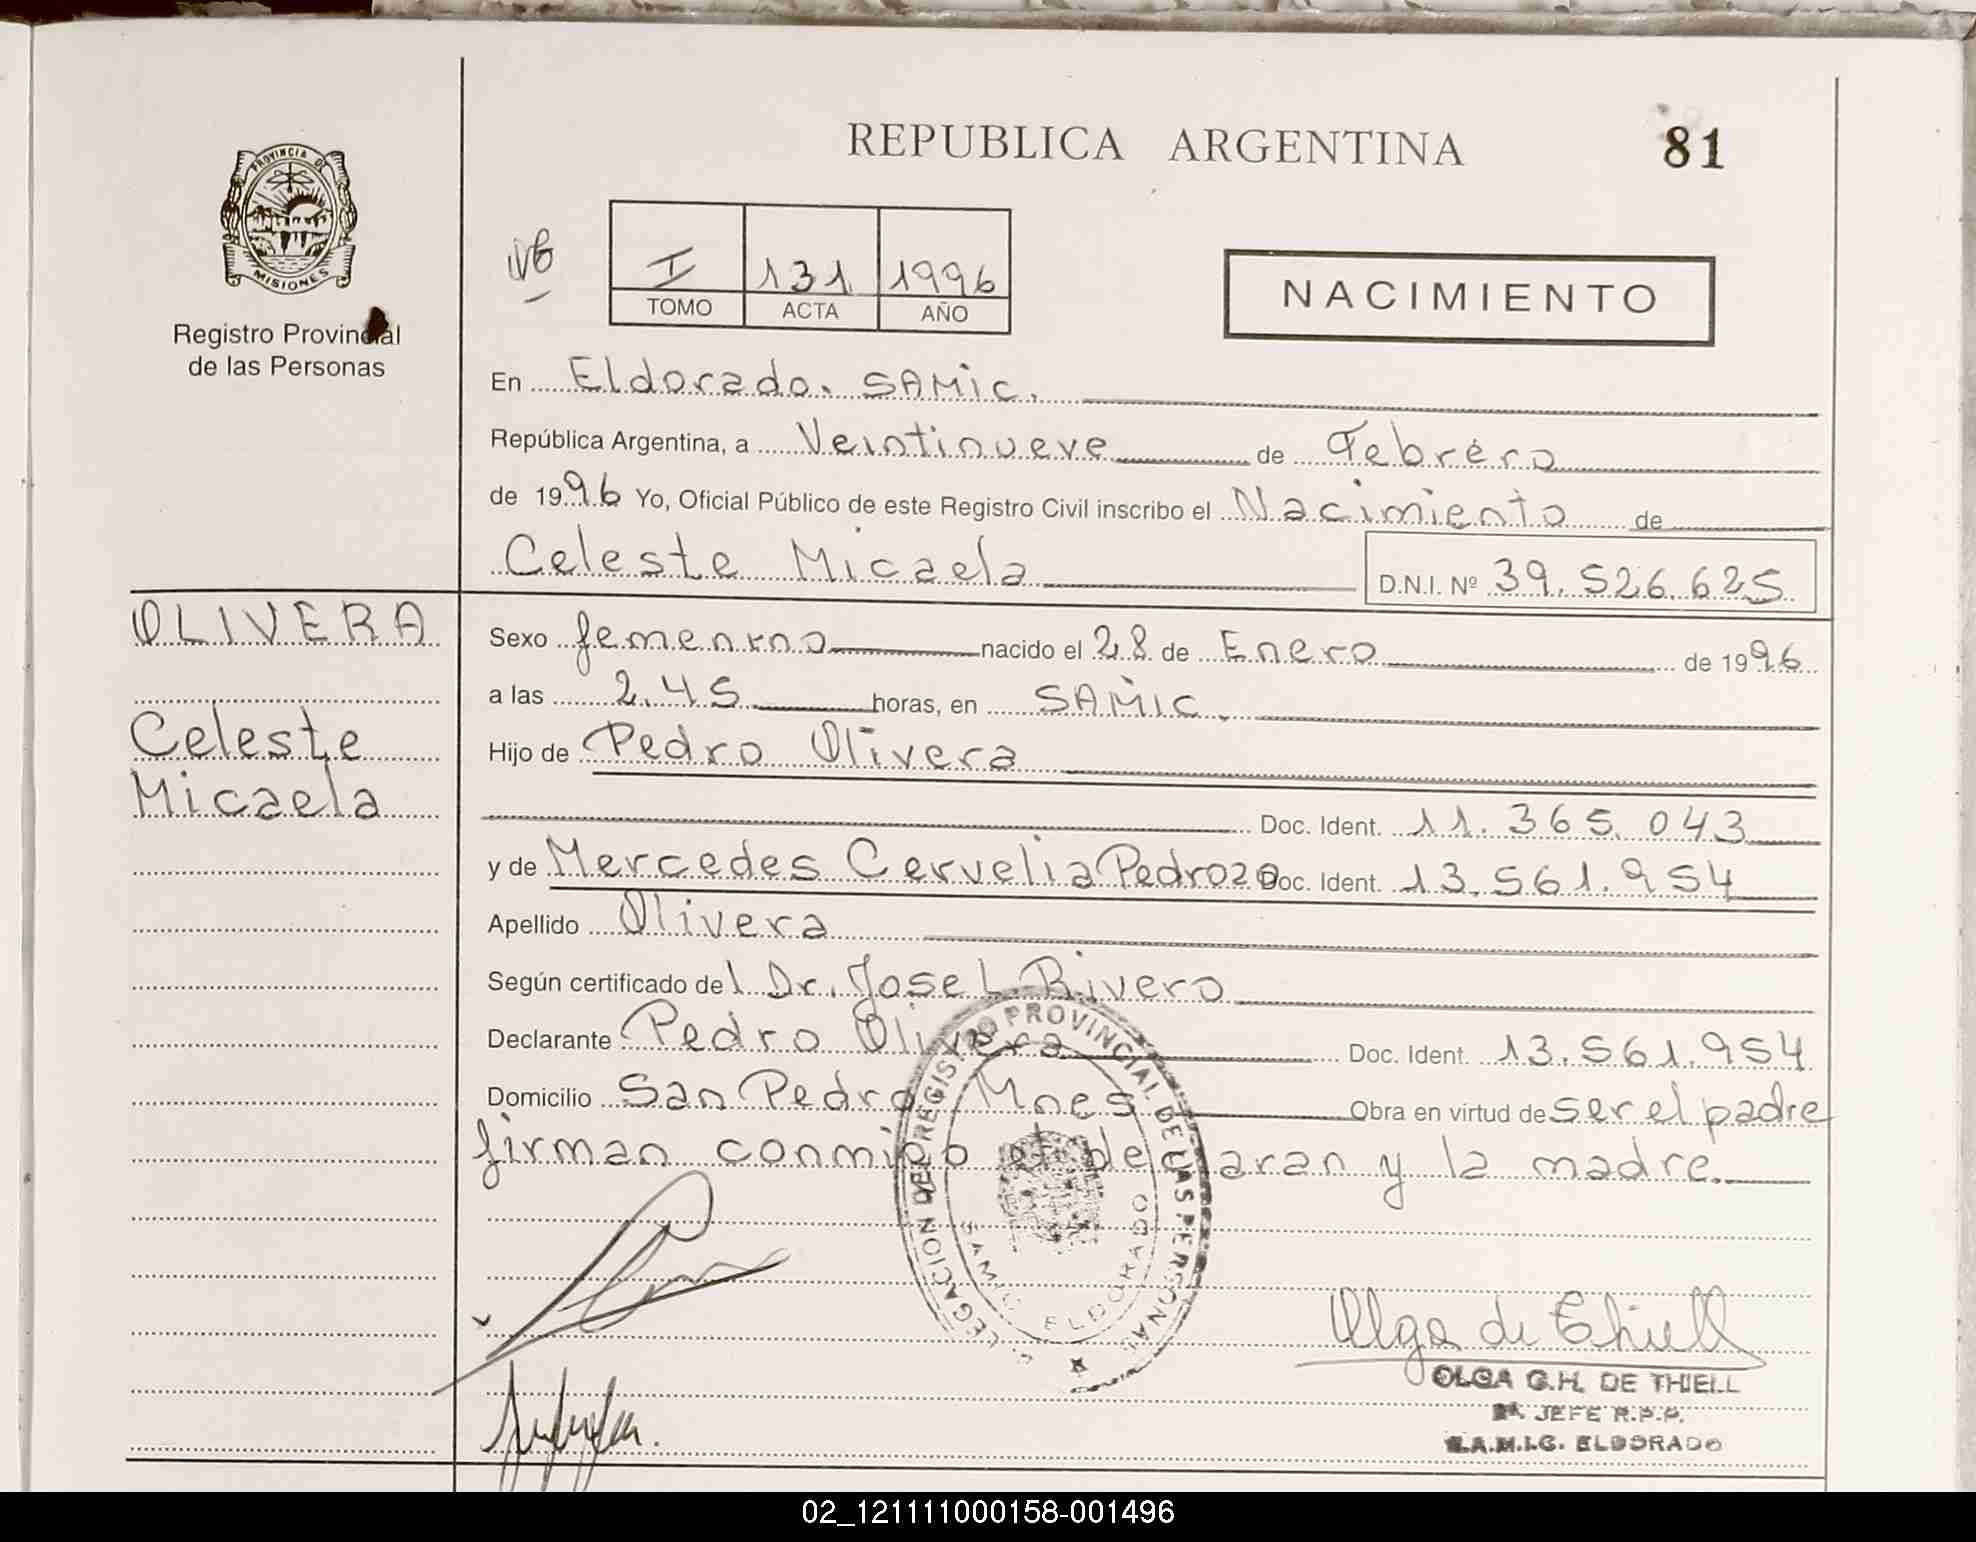 REPUBLICA ARGENTINA
81
PROVINCIA DE
MISIONES
Registro Provincial
de las Personas
I 131 1996
TOMO ACTA AÑO
NACIMIENTO
En Eldorado. SAMIC.
República Argentina, a Veintinueve de Febrero
de 1996 Yo, Oficial Público de este Registro Civil inscribo el Nacimiento de
Celeste Micaela D.N.I. Nº 39.526.625
OLIVERA
Celeste
Micaela
Sexo femenino nacido el 28 de Enero de 1996
a las 2.45 horas, en SAMIC.
Hijo de Pedro Olivera
Doc. Ident. 11.365.043
y de Mercedes Cervelia Pedrozo Doc. Ident. 13.561.954
Apellido Olivera
Según certificado del Dr. Jose L. Rivero
Declarante Pedro Olivera Doc. Ident. 13.561.954
Domicilio San Pedro Mnes Obra en virtud de ser el padre
firman conmigo el declaran y la madre.
DELEGACION DEL REGISTRO PROVINCIAL DE LAS PERSONAS
SAMIC ELDORADO
Olga de Thiell
OLGA G.H. DE THIELL
2ª JEFE R.P.P.
S.A.M.I.C. ELDORADO
02_121111000158-001496